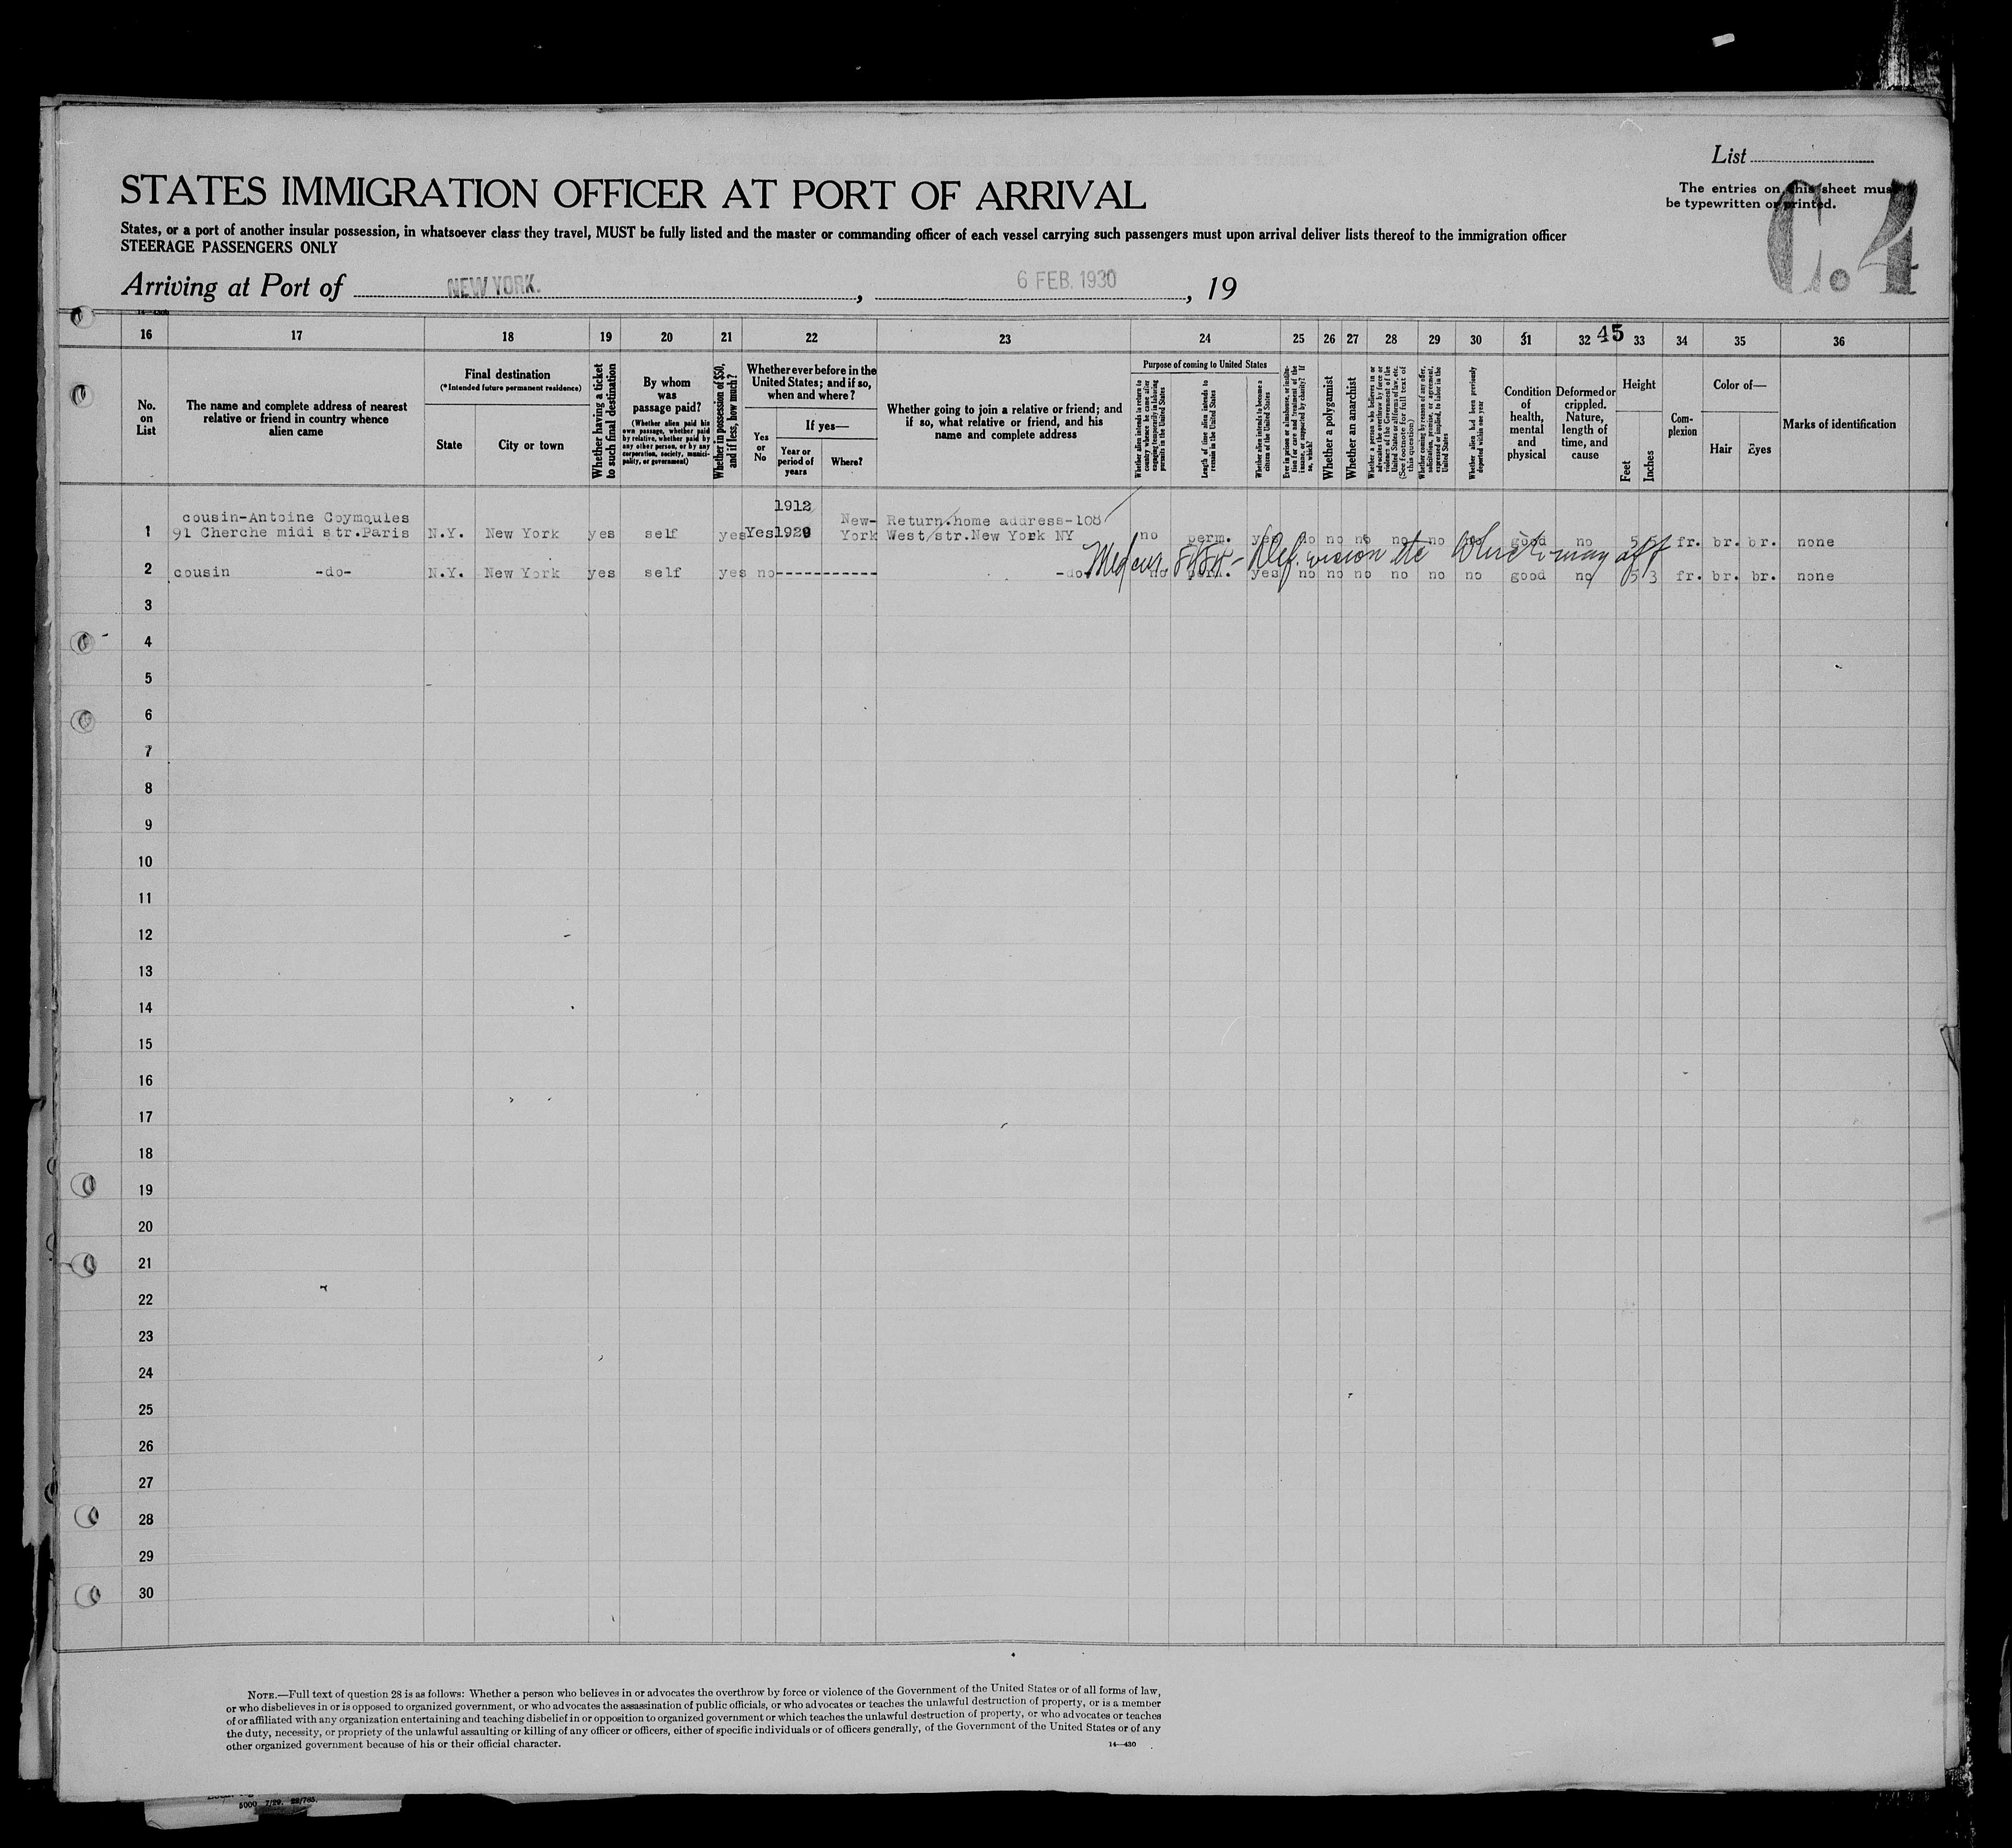 List
The entries on this sheet must
be typewritten or printed.
C.4
STATES IMMIGRATION OFFICER AT PORT OF ARRIVAL
States, or a port of another insular possession, in whatsoever class they travel, MUST be fully listed and the master or commanding officer of each vessel carrying such passengers must upon arrival deliver lists thereof to the immigration officer
STEERAGE PASSENGERS ONLY
Arriving at Port of NEW YORK. , 6 FEB. 1930 , 19
16 17 18 19 20 21 22 23 24 25 26 27 28 29 30 31 32 45 33 34 35 36
No. on List
The name and complete address of nearest relative or friend in country whence alien came
Final destination
(*Intended future permanent residence)
State
City or town
Whether having a ticket to such final destination
By whom was passage paid?
(Whether alien paid his own passage, whether paid by relative, whether paid by any other person, or by any corporation, society, municipality, or government)
Whether in possession of $50, and if less, how much?
Whether ever before in the United States; and if so, when and where?
Yes or No
If yes—
Year or period of years
Where?
Whether going to join a relative or friend; and if so, what relative or friend, and his name and complete address
Purpose of coming to United States
Whether alien intends to return to country whence he came after engaging temporarily in laboring pursuits in the United States
Length of time alien intends to remain in the United States
Whether alien intends to become a citizen of the United States
Ever in prison or almshouse, or institution for care and treatment of the insane, or supported by charity? If so, which?
Whether a polygamist
Whether an anarchist
Whether a person who believes in or advocates the overthrow by force or violence of the Government of the United States or all forms of law, etc. (See footnote for full text of this question)
Whether coming by reason of any offer, solicitation, promise, or agreement, expressed or implied, to labor in the United States
Whether alien had been previously deported within one year
Condition of health, mental and physical
Deformed or crippled. Nature, length of time, and cause
Height
Feet
Inches
Complexion
Color of—
Hair
Eyes
Marks of identification
1912
cousin-Antoine Coymoules New- Return.home address-108
1 91 Cherche midi str.Paris N.Y. New York yes self yes Yes 1929 York West/str.New York NY no perm. yes no no no no no no good no 5 5 fr. br. br. none
Med cer. Def. vision etc which may aff
2 cousin -do- N.Y. New York yes self yes no----------- -do- no perm. yes no no no no no no good no 5 3 fr. br. br. none
3
4
5
6
7
8
9
10
11
12
13
14
15
16
17
18
19
20
21
22
23
24
25
26
27
28
29
30
NOTE.—Full text of question 28 is as follows: Whether a person who believes in or advocates the overthrow by force or violence of the Government of the United States or of all forms of law,
or who disbelieves in or is opposed to organized government, or who advocates the assassination of public officials, or who advocates or teaches the unlawful destruction of property, or is a member
of or affiliated with any organization entertaining and teaching disbelief in or opposition to organized government or which teaches the unlawful destruction of property, or who advocates or teaches
the duty, necessity, or propriety of the unlawful assaulting or killing of any officer or officers, either of specific individuals or of officers generally, of the Government of the United States or of any
other organized government because of his or their official character.
14—430
5000 7/29. 22/765.